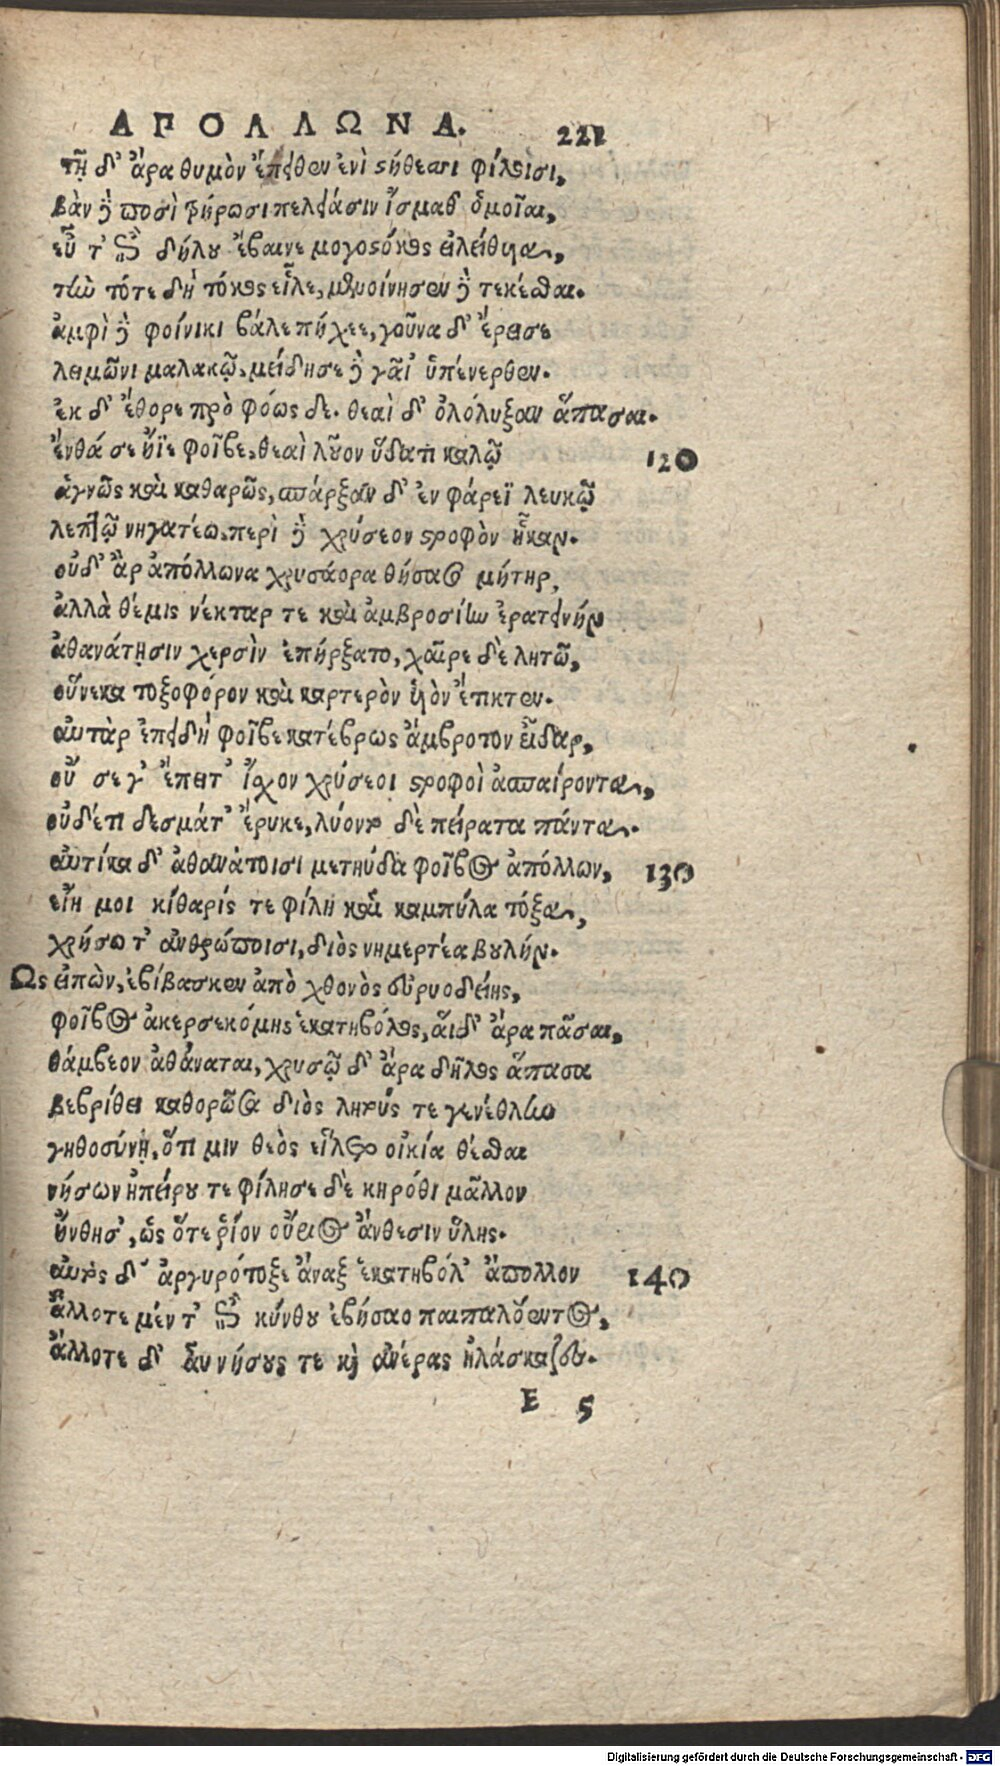 ΑΠΟΛΛΩΝΑ. 221
τῇ δ' ἄρα θυμὸν ἔπειθεν ἐνὶ στήθεσσι φίλοισι,
βὰν δὲ ποσὶ τρήρωσι πελειάσιν ἴσμαθ' ὁμοῖαι,
εὖ τ' ἐπὶ δήλου ἔβαινε μογοστόκος εἰλείθυα,
τὴν τότε δὴ τόκος εἷλε, μενοίνησεν δὲ τεκέσθαι.
ἀμφὶ δὲ φοίνικι βάλε πήχεε, γοῦνα δ' ἔρεισε
λειμῶνι μαλακῷ, μείδησε δὲ γαῖ' ὑπένερθεν.
ἐκ δ' ἔθορε πρὸ φόως δε. θεαὶ δ' ὀλόλυξαν ἅπασαι.
ἔνθά σε ἤϊε φοῖβε, θεαὶ λῦον ὕδατι καλῷ 120
ἁγνῶς καὶ καθαρῶς, σπάρξαν δ' ἐν φάρεϊ λευκῷ
λεπτῷ νηγατέῳ, περὶ δὲ χρύσεον στροφὸν ἧκαν.
οὐδ' ἂρ ἀπόλλωνα χρυσάορα θήσατο μήτηρ,
ἀλλὰ θέμις νέκταρ τε καὶ ἀμβροσίην ἐρατεινὴν
ἀθανάτῃσιν χερσὶν ἐπήρξατο, χαῖρε δὲ λητῶ,
οὕνεκα τοξοφόρον καὶ καρτερὸν υἱὸν ἔτικτεν.
αὐτὰρ ἐπειδὴ φοῖβε κατέβρως ἄμβροτον εἶδαρ,
οὔ σε γ' ἔπειτ' ἴσχον χρύσεοι στροφοὶ ἀσπαίροντα,
οὐδέτι δεσμάτ' ἔρυκε, λύοντο δὲ πείρατα πάντα.
αὐτίκα δ' ἀθανάτοισι μετηύδα φοῖβος ἀπόλλων, 130
εἴη μοι κίθαρίς τε φίλη καὶ καμπύλα τόξα,
χρήσω τ' ἀνθρώποισι, διὸς νημερτέα βουλήν.
Ως εἰπὼν, ἐβίβασκεν ἀπὸ χθονὸς εὐρυοδείης,
φοῖβος ἀκερσεκόμης ἑκατηβόλος, αἱ δ' ἄρα πᾶσαι,
θάμβεον ἀθάναται, χρυσῷ δ' ἄρα δῆλος ἅπασα
βεβρίθει καθορῶσα διὸς λητοῦς τε γενέθλην
γηθοσύνῃ, ὅτι μιν θεὸς εἵλετο οἰκία θέσθαι
νήσων ἠπείρου τε φίλησε δὲ κηρόθι μᾶλλον
ἤνθησ', ὡς ὅτε ῥίον οὔρεος ἄνθεσιν ὕλης.
αὐτὸς δ' ἀργυρότοξε ἄναξ ἑκατηβόλ' ἄπολλον 140
ἄλλοτε μέν τ' ἐπὶ κύνθου ἐβήσαο παιπαλόεντος,
ἄλλοτε δ' ἂυ νήσους τε καὶ ἀνέρας ἠλάσκαζες.
E 5
Digitalisierung gefördert durch die Deutsche Forschungsgemeinschaft - DFG